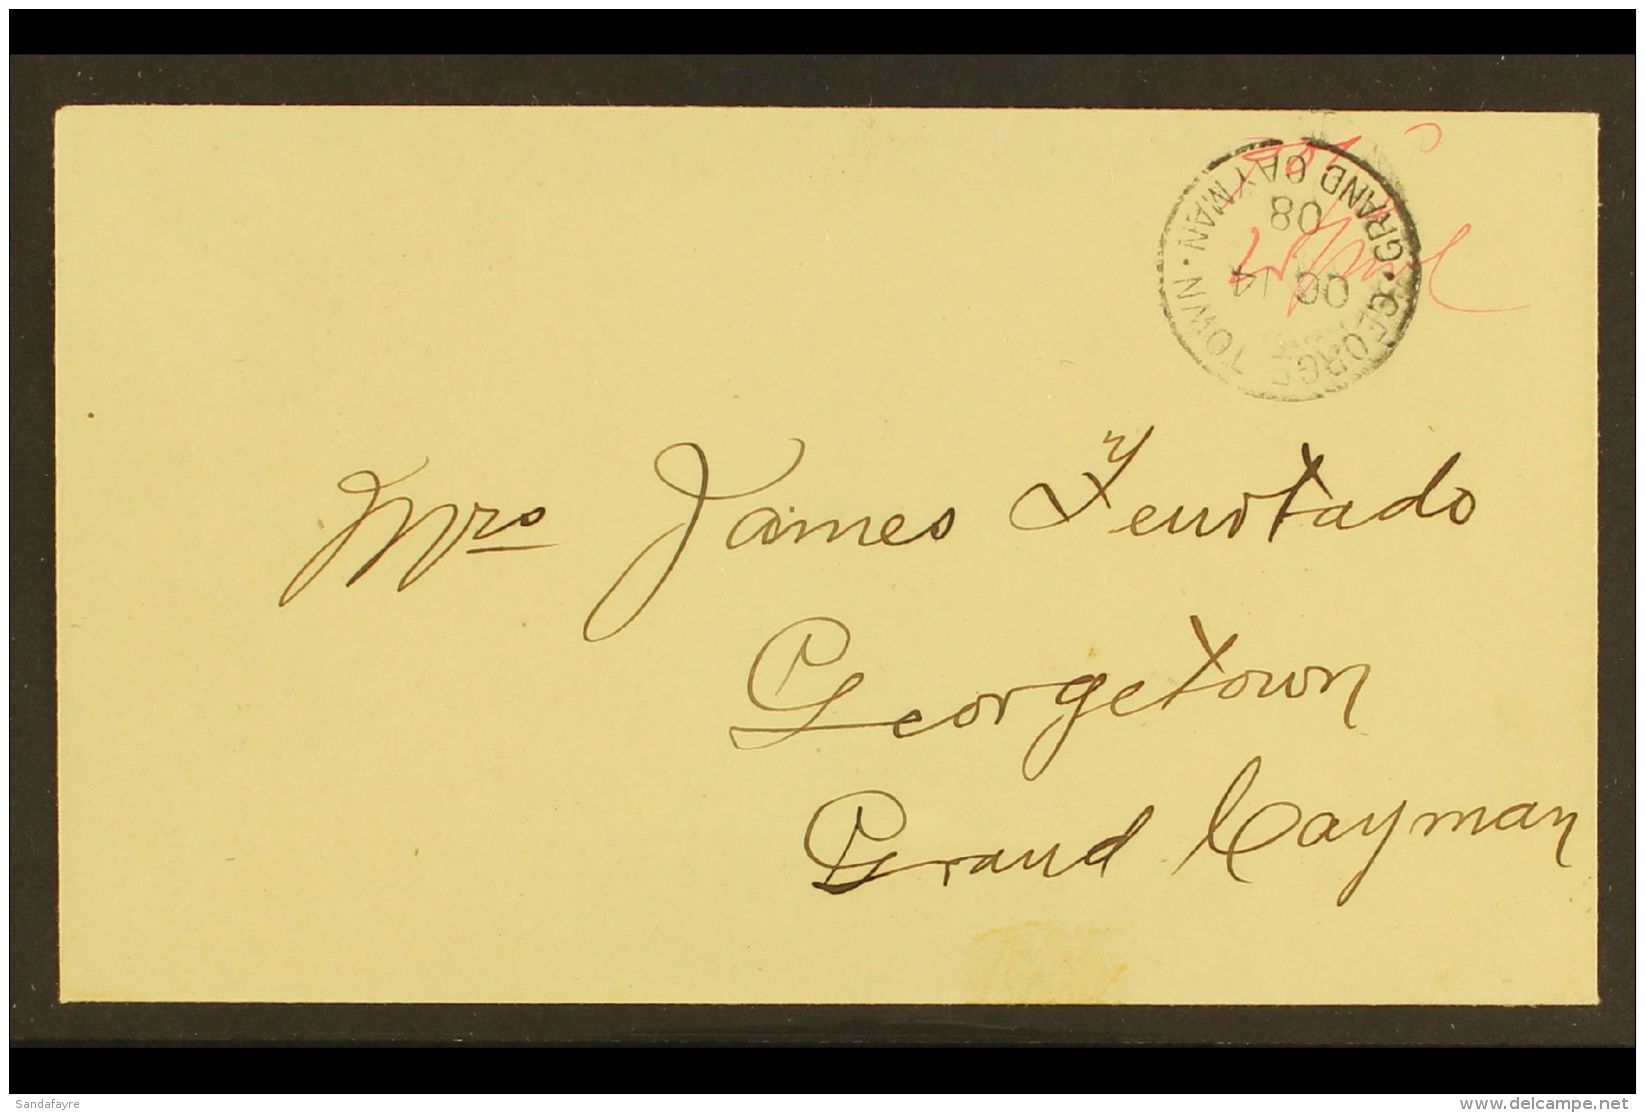 GRAND CAYMAN · GEORGE TOWN ·
08
OC 14
Mrs James Feurtado
Georgetown
Grand Cayman
Sandafayre
delcampe.net